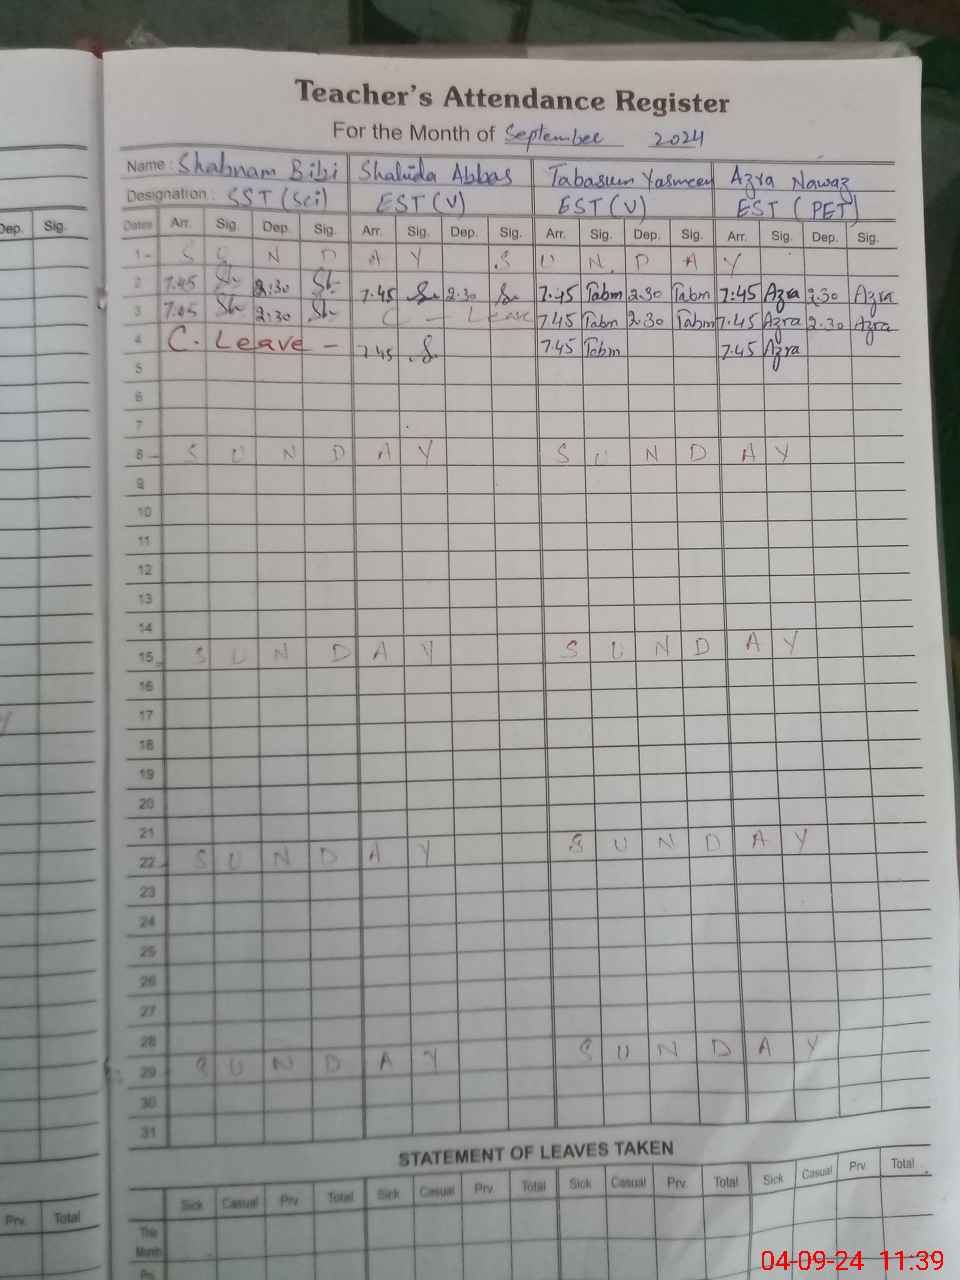 Teacher's Attendance Register
For the Month of September 2024
Name: Shabnam Bibi Shahida Abbas Tabasum Yasmeen Azra Nawaz
Designation: SST (Sci) EST (V) EST (V) EST (PET)
Dep. Sig. Dates Arr. Sig. Dep. Sig. Arr. Sig. Dep. Sig. Arr. Sig. Dep. Sig. Arr. Sig. Dep. Sig.
1 - S U N D A Y S U N D A Y
2 7.45 Sh 2:30 Sh 7.45 2.30 7.45 Tabm 2.30 Tabm 7:45 Azra 2.30 Azra
3 7.45 Sh 2:30 Sh C - Leave 7.45 Tabm 2.30 Tabm 7.45 Azra 2.30 Azra
4 C. Leave - 7.45 7.45 Tabm 7.45 Azra
5
6
7
8 - S U N D A Y S U N D A Y
9
10
11
12
13
14
15 S U N D A Y S U N D A Y
16
17
18
19
20
21
22 S U N D A Y S U N D A Y
23
24
25
26
27
28
29 S U N D A Y S U N D A Y
30
31
STATEMENT OF LEAVES TAKEN
Prv. Total Sick Casual Prv. Total Sick Casual Prv. Total Sick Casual Prv. Total Sick Casual Prv. Total
This
Month
04-09-24 11:39